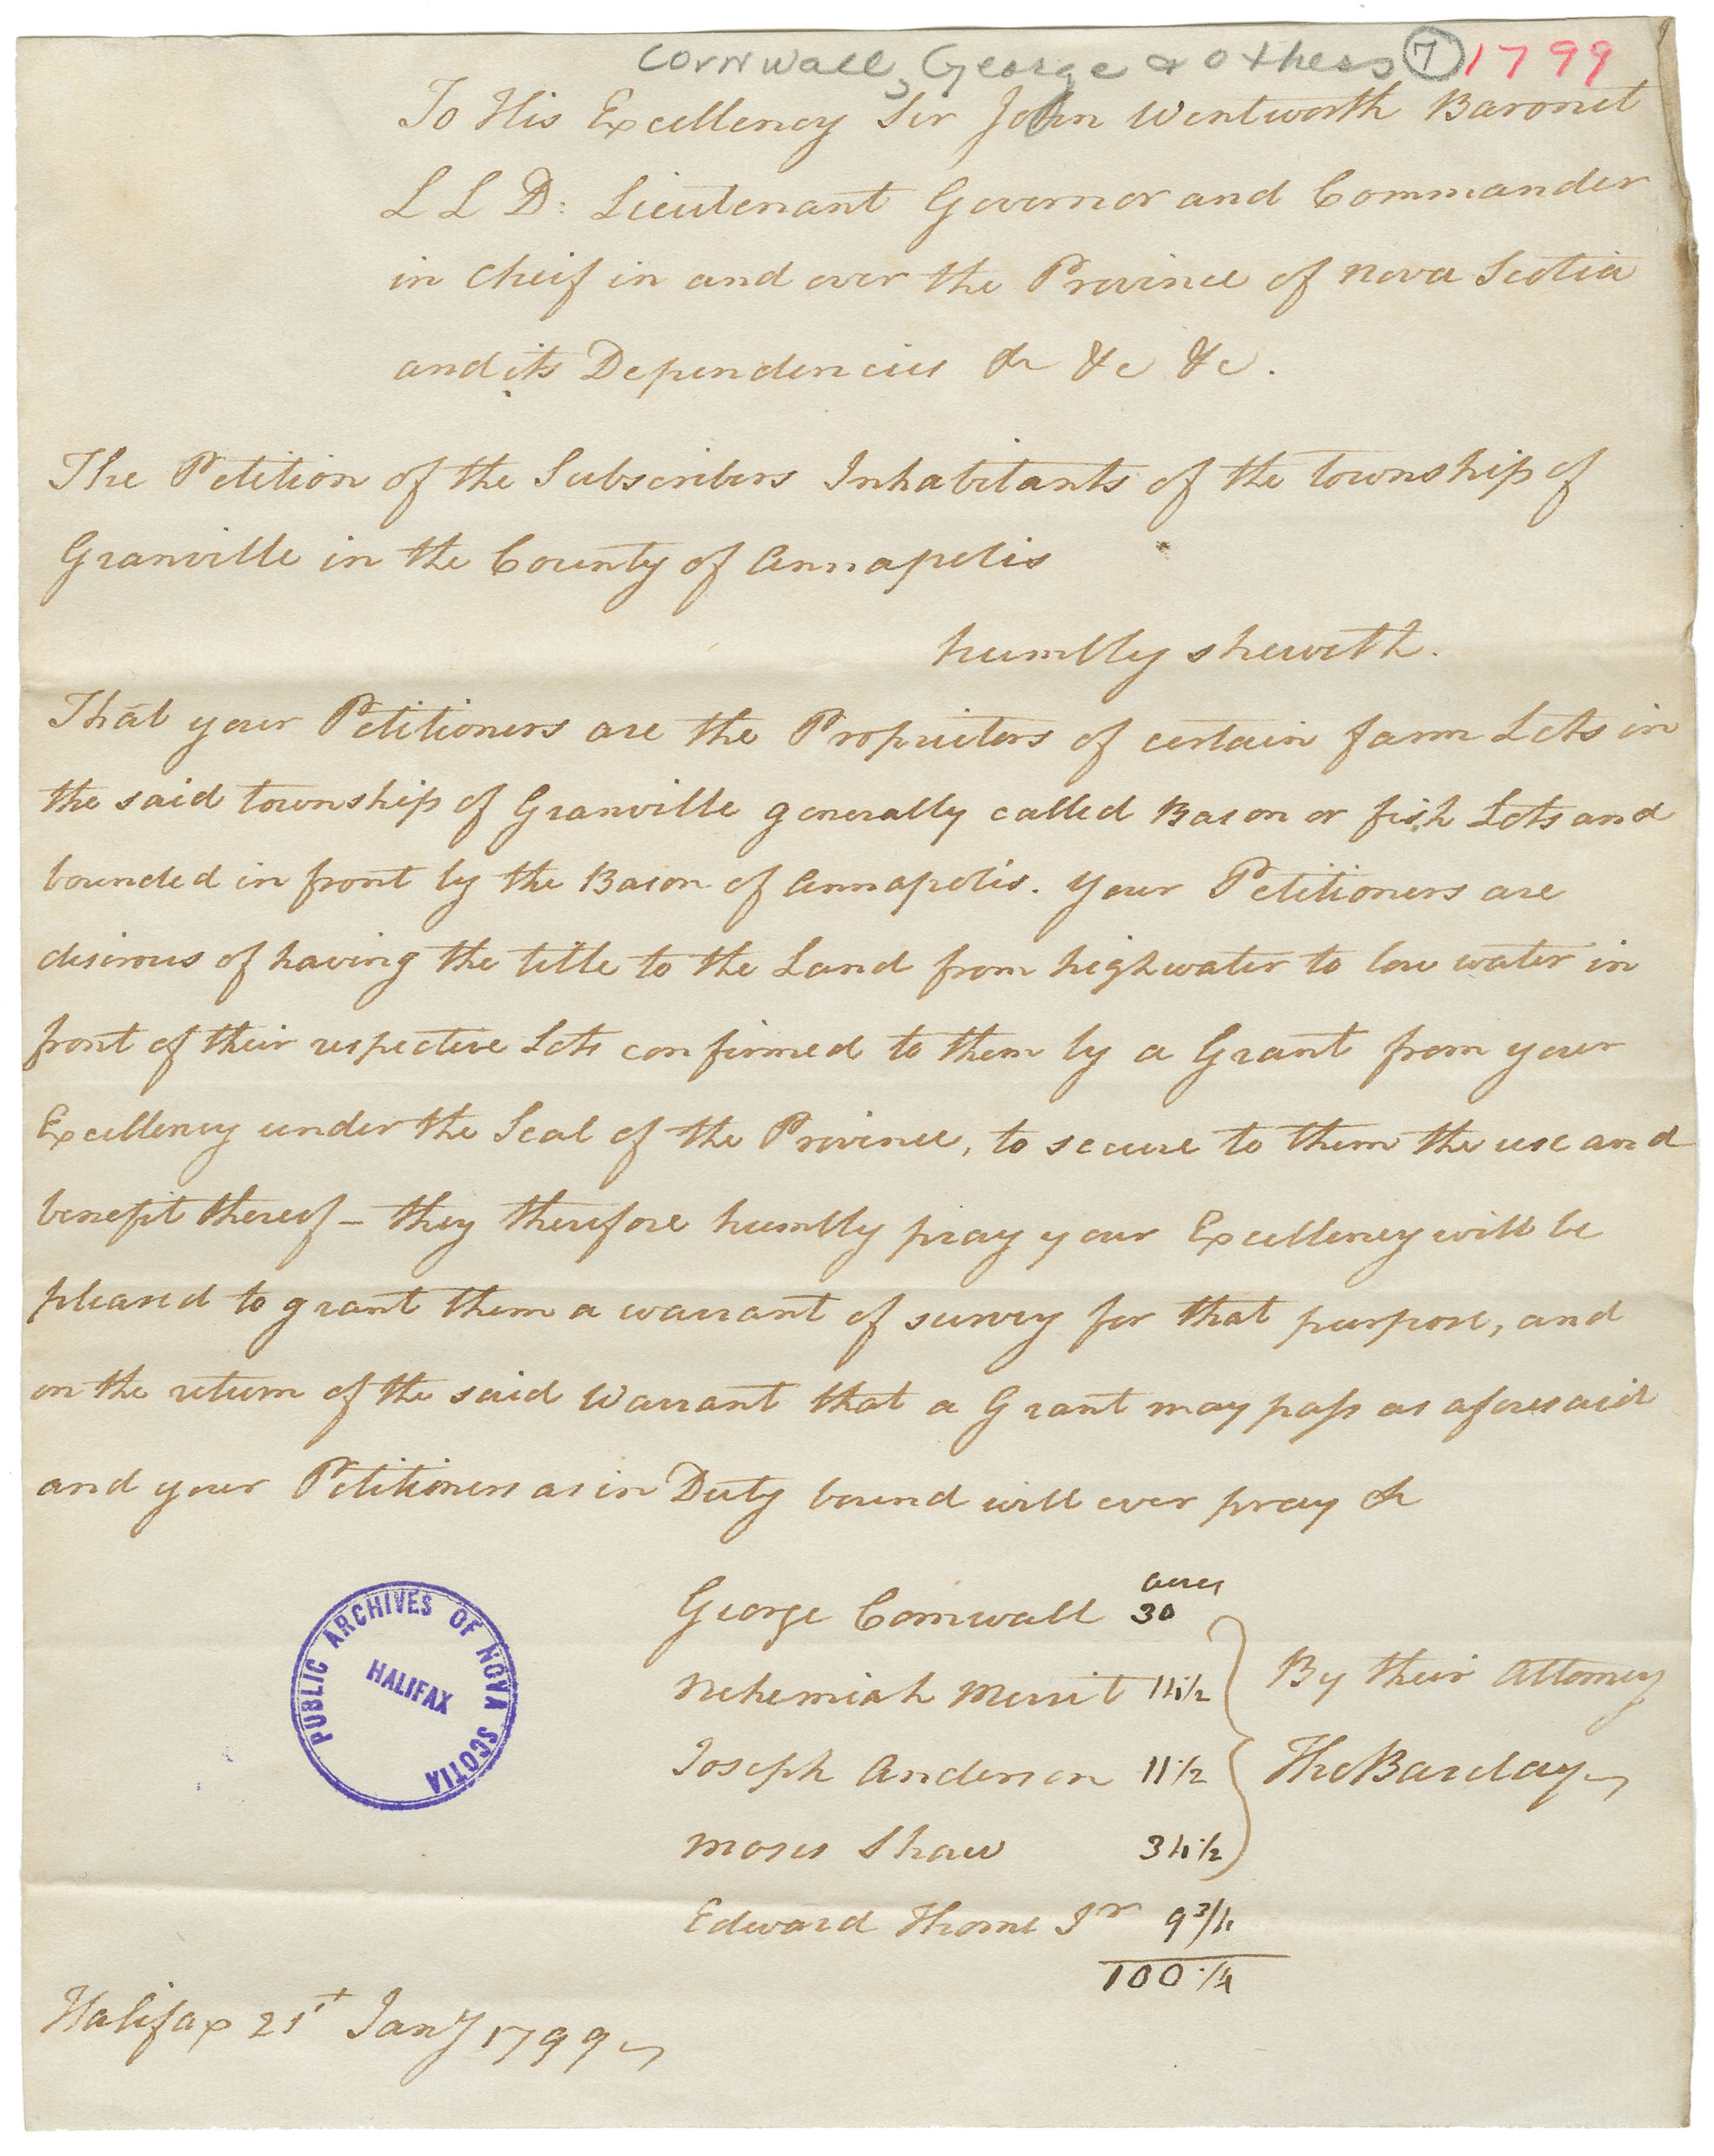 Cornwall, George & others 7 1799
To His Excellency Sir John Wentworth Baronet
L L D: Lieutenant Governor and Commander
in Cheif in and over the Province of Nova Scotia
and its Dependencies &c &c &c.
The Petition of the Subscribers Inhabitants of the township of
Granville in the County of Annapolis
humbly sheweth.
That your Petitioners are the Proprietors of certain farm Lots in
the said township of Granville generally called Bason or fish Lots and
bounded in front by the Bason of Annapolis. Your Petitioners are
desirous of having the title to the Land from highwater to low water in
front of their respective Lots confirmed to them by a Grant from your
Excellency under the Seal of the Province, to secure to them the use and
benefit thereof – they therefore humbly pray your Excellency will be
pleased to grant them a warrant of survey for that purpose, and
on the return of the said Warrant that a Grant may pass as aforesaid
and your Petitioners as in Duty bound will ever pray &c
acres
George Cornwall 30
Nehemiah Merrit 14½
By their Attorney
Joseph Anderson 11½
Tho Barclay
Moses Shaw 34½
Edward Thorne Jr 9¾
100¼
PUBLIC ARCHIVES OF NOVA SCOTIA
HALIFAX
Halifax 21st Jany 1799